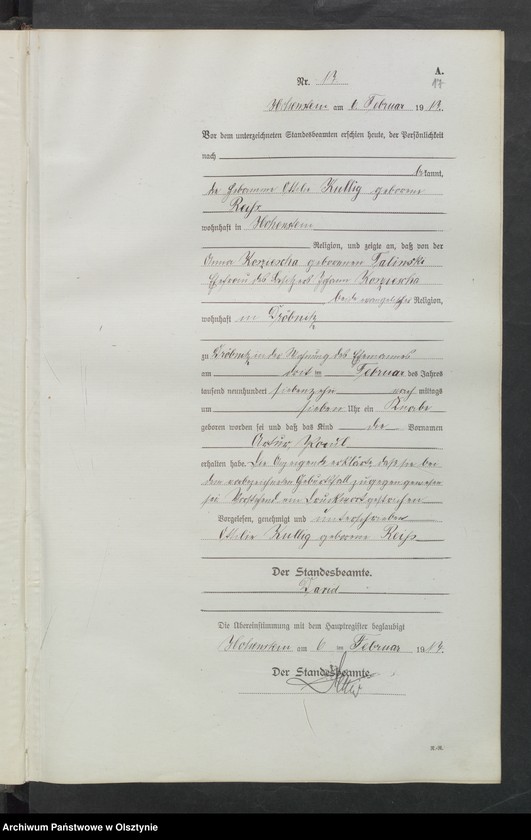 A.
Nr. 13
17
Hohenstein am 6. Februar 19
Vor dem unterzeichneten Standesbeamten erschien heute, der Persönlichkeit
nach
bekannt,
die Hebamme Ottilie Kullig geborene
Reiß
wohnhaft in Hohenstein
Religion, und zeigte an, daß von der
Anna geborenen
Ehefrau des Besitzers Johann
beide evangelischer Religion,
wohnhaft in Dröbnitz
zu Dröbnitz in der Wohnung des Ehemannes
am Februar des Jahres
tausend neunhundert siebenzehn nach mittags
um sieben Uhr ein Knabe
geboren worden sei und daß das Kind die Vornamen
Artur
erhalten habe. Die Anzeigende erklärte, daß sie bei
dem vorbezeichneten Geburtsfall zugegen gewesen
sei. Vorstehend ein Druckwort gestrichen
Vorgelesen, genehmigt und unterschrieben
Ottilie Kullig geborene Reiß
Der Standesbeamte.
Die Übereinstimmung mit dem Hauptregister beglaubigt
Hohenstein am 6 Februar 19
Der Standesbeamte
Archiwum Państwowe w Olsztynie